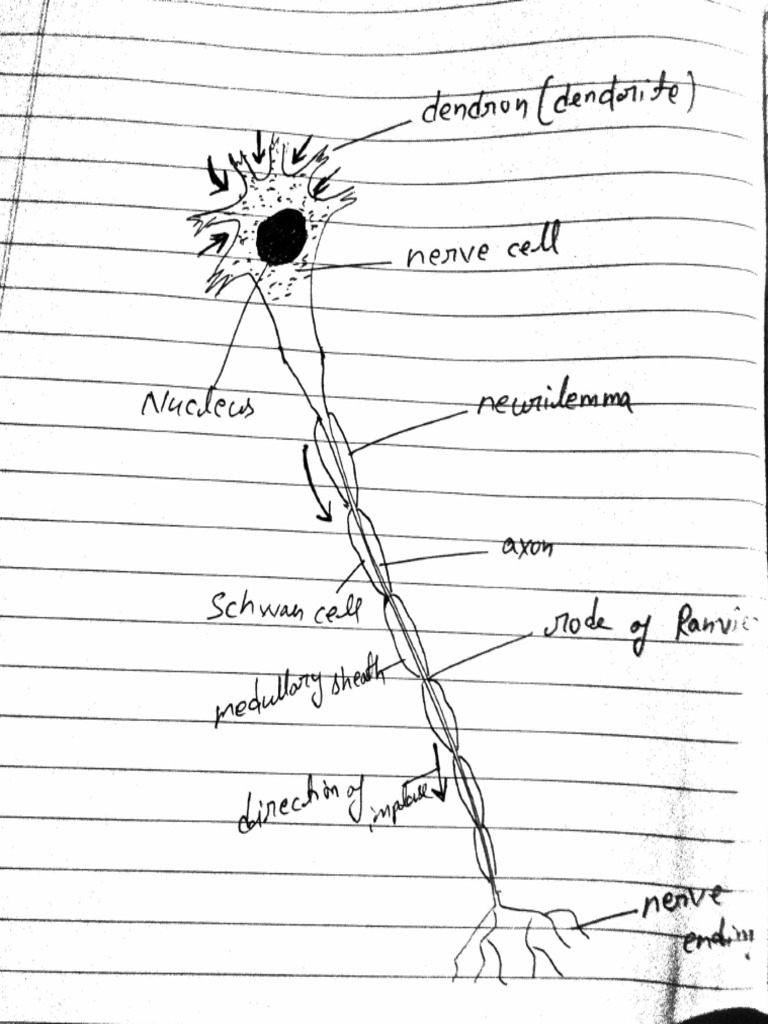 dendron (dendorite)
nerve cell
Nucleus
neurilemma
axon
Schwan cell
rode of Ranvie
medullary sheath
direction of
impulse
nerve
ending